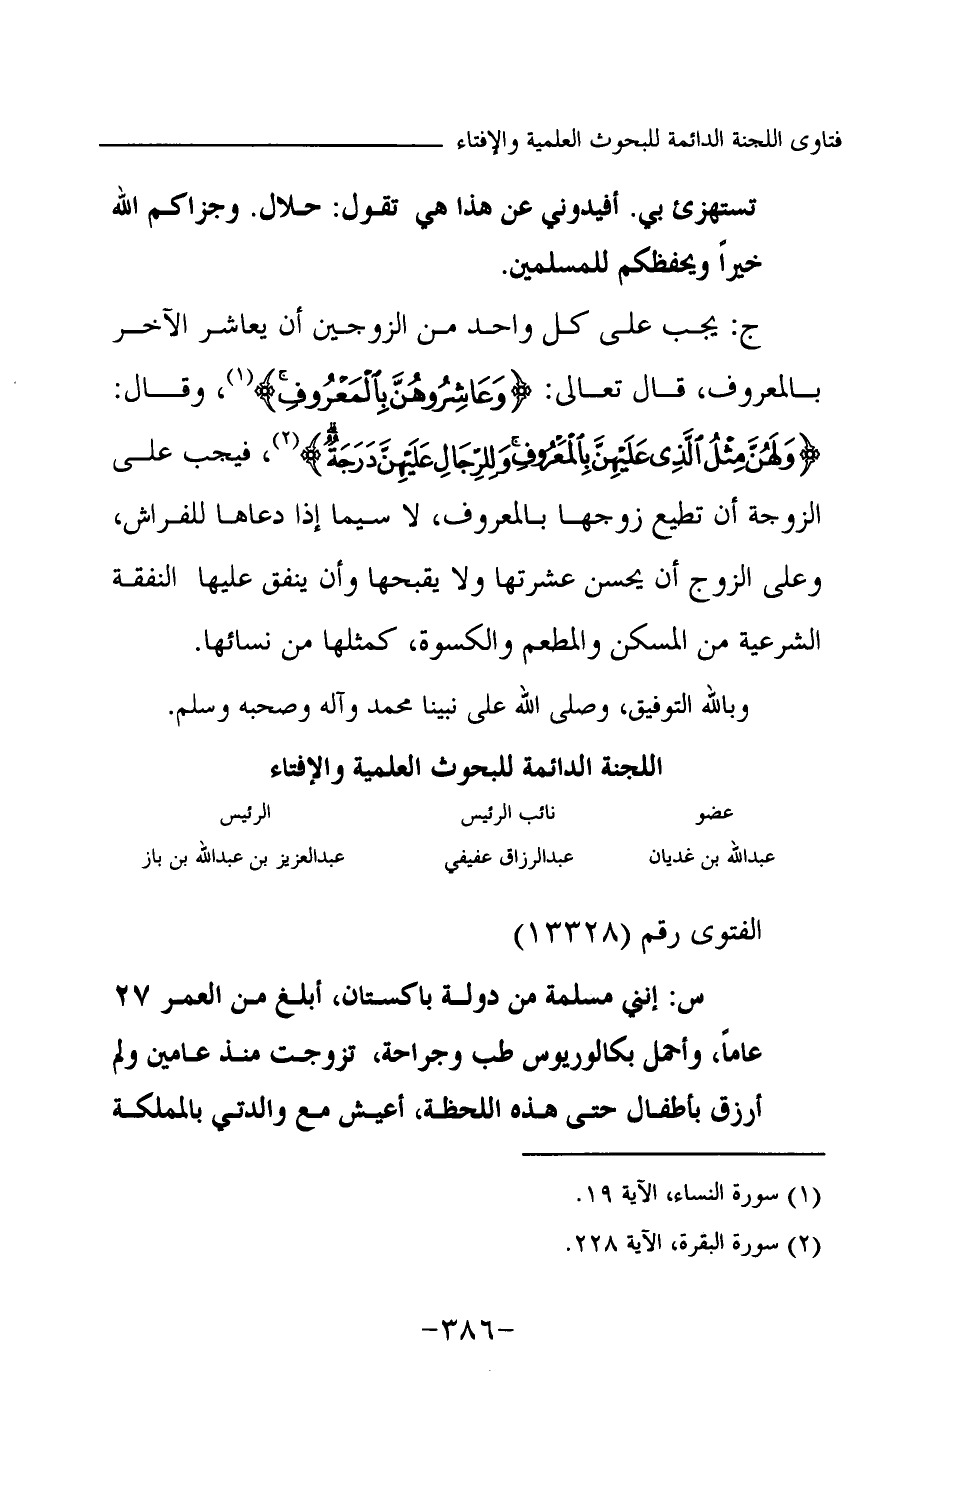 فتاوى اللجنة الدائمة للبحوث العلمية والإفتاء
تستهزئ بي. أفيدوني عن هذا هي تقول: حلال. وجزاكم الله
خيراً ويحفظكم للمسلمين.
ج: يجب على كل واحد من الزوجين أن يعاشر الآخر
بالمعروف، قال تعالى: ﴿وَعَاشِرُوهُنَّ بِٱلْمَعْرُوفِ ۚ﴾(١)، وقال:
﴿وَلَهُنَّ مِثْلُ ٱلَّذِى عَلَيْهِنَّ بِٱلْمَعْرُوفِ ۚ وَلِلرِّجَالِ عَلَيْهِنَّ دَرَجَةٌ ۗ﴾(٢)، فيجب على
الزوجة أن تطيع زوجها بالمعروف، لا سيما إذا دعاها للفراش،
وعلى الزوج أن يحسن عشرتها ولا يقبحها وأن ينفق عليها النفقة
الشرعية من المسكن والمطعم والكسوة، كمثلها من نسائها.
وبالله التوفيق، وصلى الله على نبينا محمد وآله وصحبه وسلم.
اللجنة الدائمة للبحوث العلمية والإفتاء
عضو نائب الرئيس الرئيس
عبدالله بن غديان عبدالرزاق عفيفي عبدالعزيز بن عبدالله بن باز
الفتوى رقم (١٣٣٢٨)
س: إنني مسلمة من دولة باكستان، أبلغ من العمر ٢٧
عاماً، وأحمل بكالوريوس طب وجراحة، تزوجت منذ عامين ولم
أرزق بأطفال حتى هذه اللحظة، أعيش مع والدتي بالمملكة
(١) سورة النساء، الآية ١٩.
(٢) سورة البقرة، الآية ٢٢٨.
-٣٨٦-